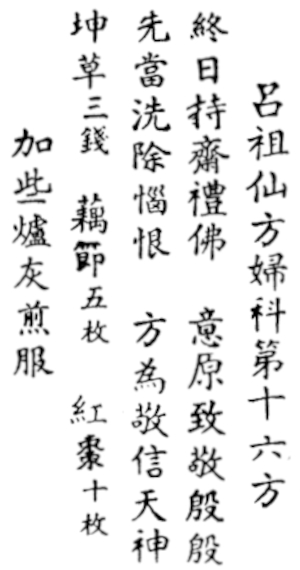 呂祖仙方婦科第十六方
終日持齋禮佛 意原致敬殷殷
先當洗除惱恨 方為敬信天神
坤草三錢 藕節五枚 紅棗十枚
加些爐灰煎服